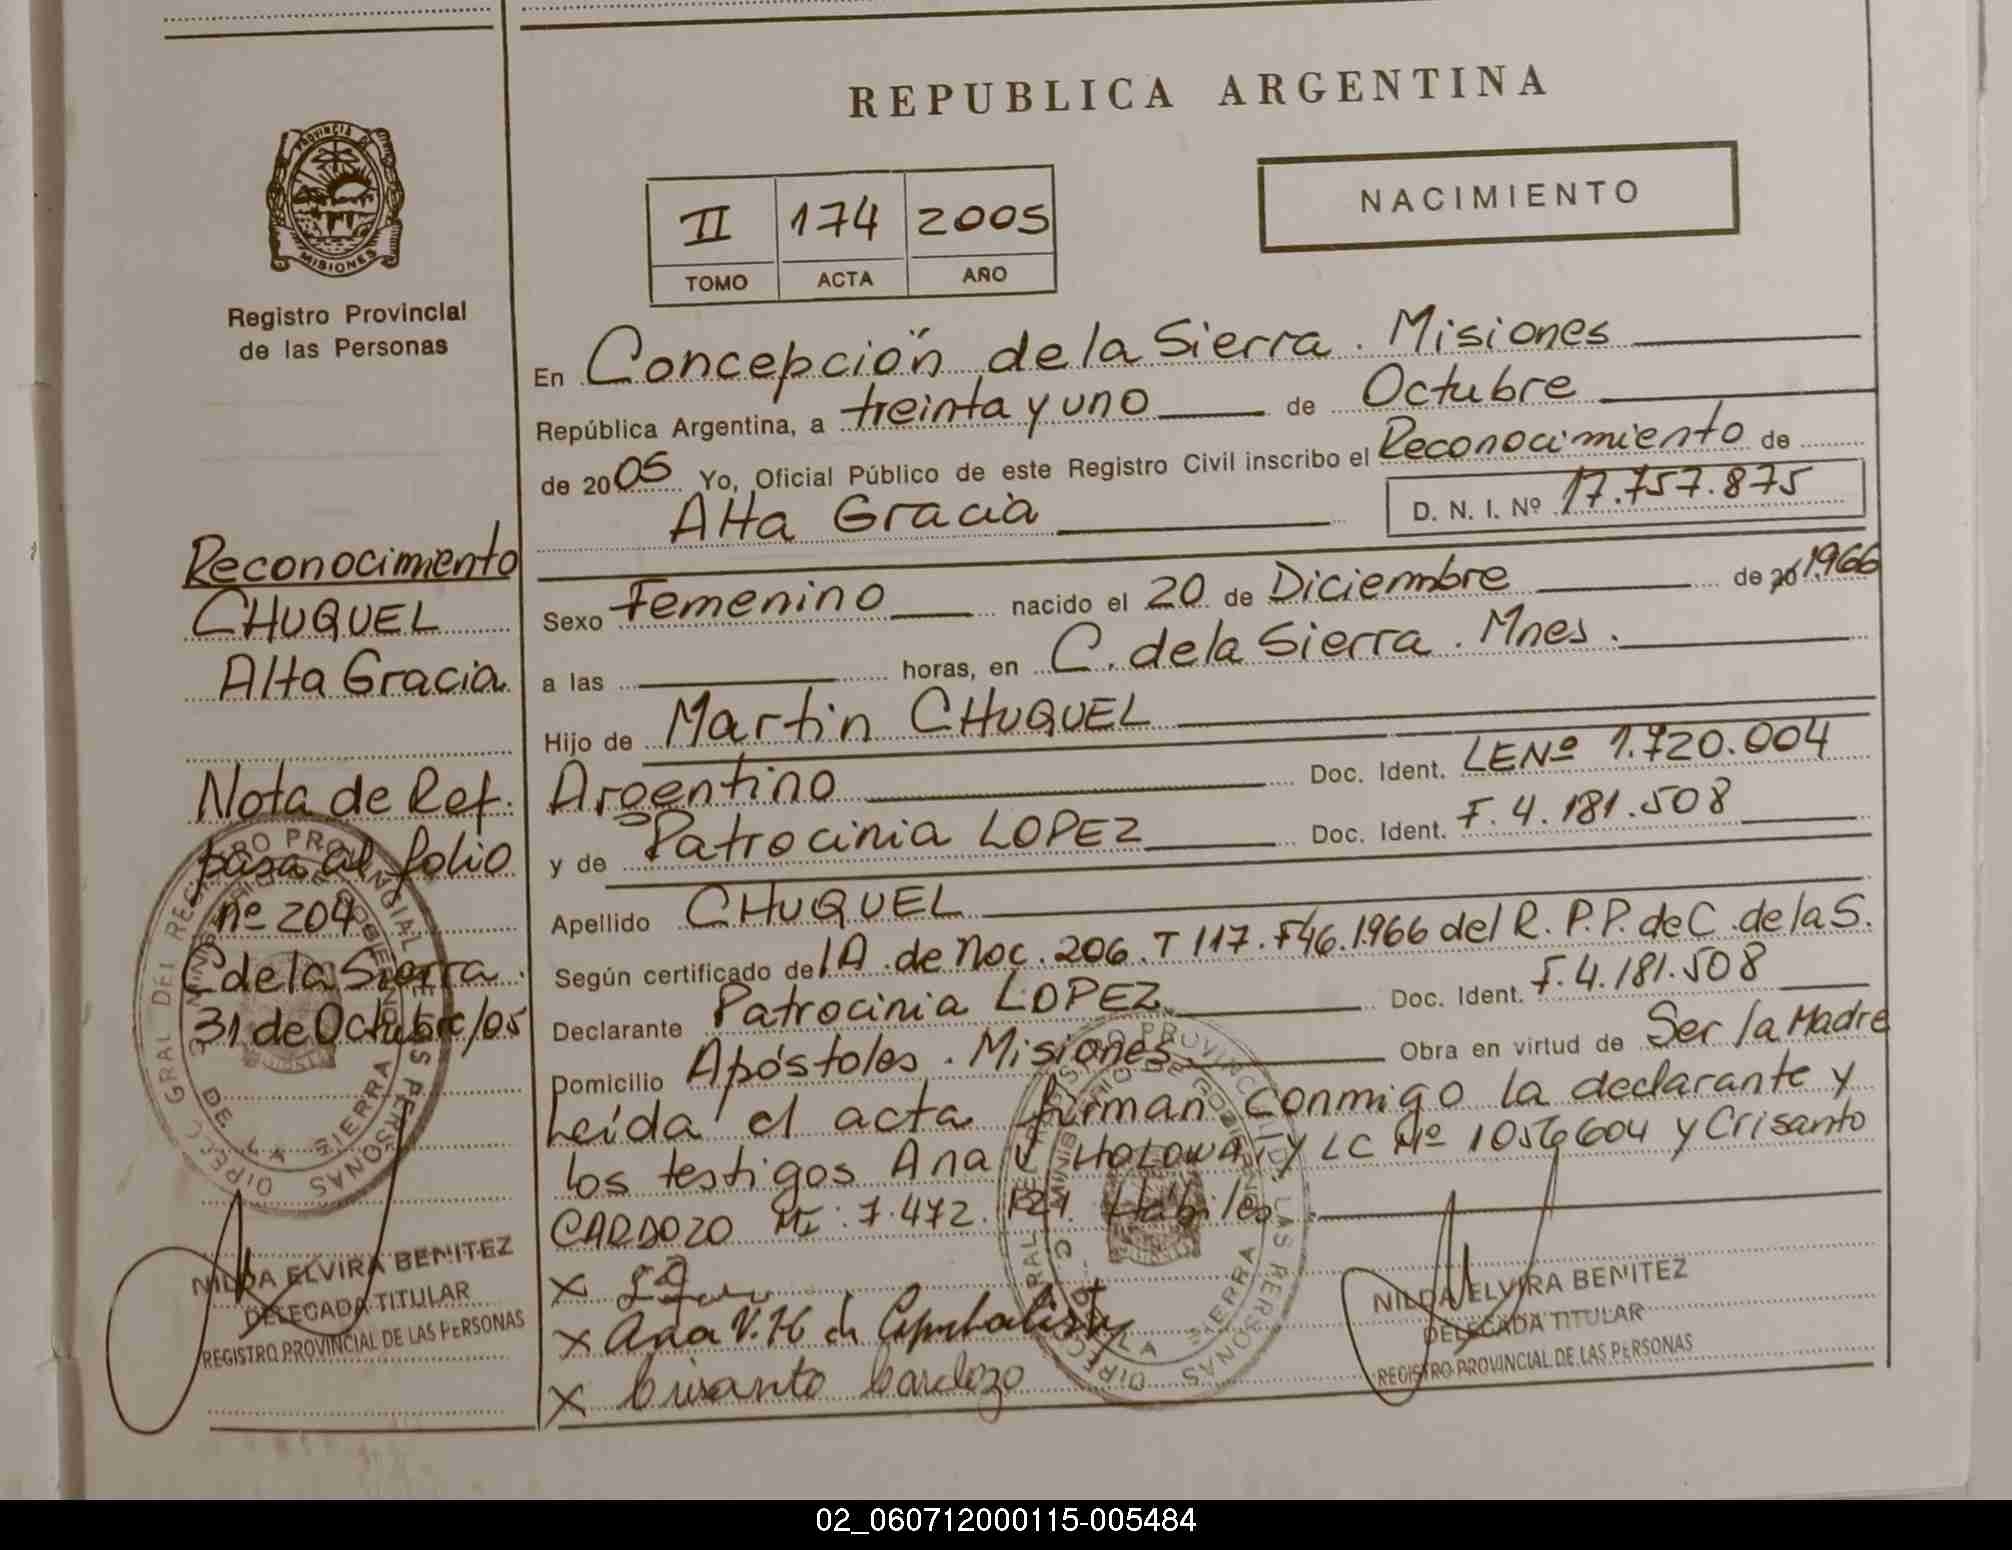 REPUBLICA ARGENTINA
NACIMIENTO
II 174 2005
TOMO ACTA AÑO
PROVINCIA DE MISIONES
Registro Provincial
de las Personas
Reconocimiento
CHUQUEL
Alta Gracia
Nota de Ref.
pasa al folio
nº 204
C de la Sierra.
31 de Octubre/05
NILDA ELVIRA BENITEZ
DELEGADA TITULAR
REGISTRO PROVINCIAL DE LAS PERSONAS
En Concepción de la Sierra. Misiones
República Argentina, a treinta y uno de Octubre
de 2005 Yo, Oficial Público de este Registro Civil inscribo el Reconocimiento de
Alta Gracia D. N. I. Nº 17.757.875
Sexo Femenino nacido el 20 de Diciembre de 20 1966
a las horas, en C. de la Sierra. Mnes.
Hijo de Martin CHUQUEL
Argentino Doc. Ident. LE Nº 1.720.004
y de Patrocinia LOPEZ Doc. Ident. F. 4.181.508
Apellido CHUQUEL
Según certificado de A. de Nac. 206. T 117. F46. 1966 del R. P. P. de C. de la S.
Declarante Patrocinia LOPEZ Doc. Ident. F. 4.181.508
Domicilio Apóstoles. Misiones Obra en virtud de Ser la Madre
Leída el acta firman conmigo la declarante y
los testigos Ana V HOLOWATY LC Nº 1056604 y Crisanto
CARDOZO MI: 7.472.121. Hábiles.
X
X Ana V. H de
X Crisanto Cardozo
NILDA ELVIRA BENITEZ
DELEGADA TITULAR
REGISTRO PROVINCIAL DE LAS PERSONAS
02_060712000115-005484